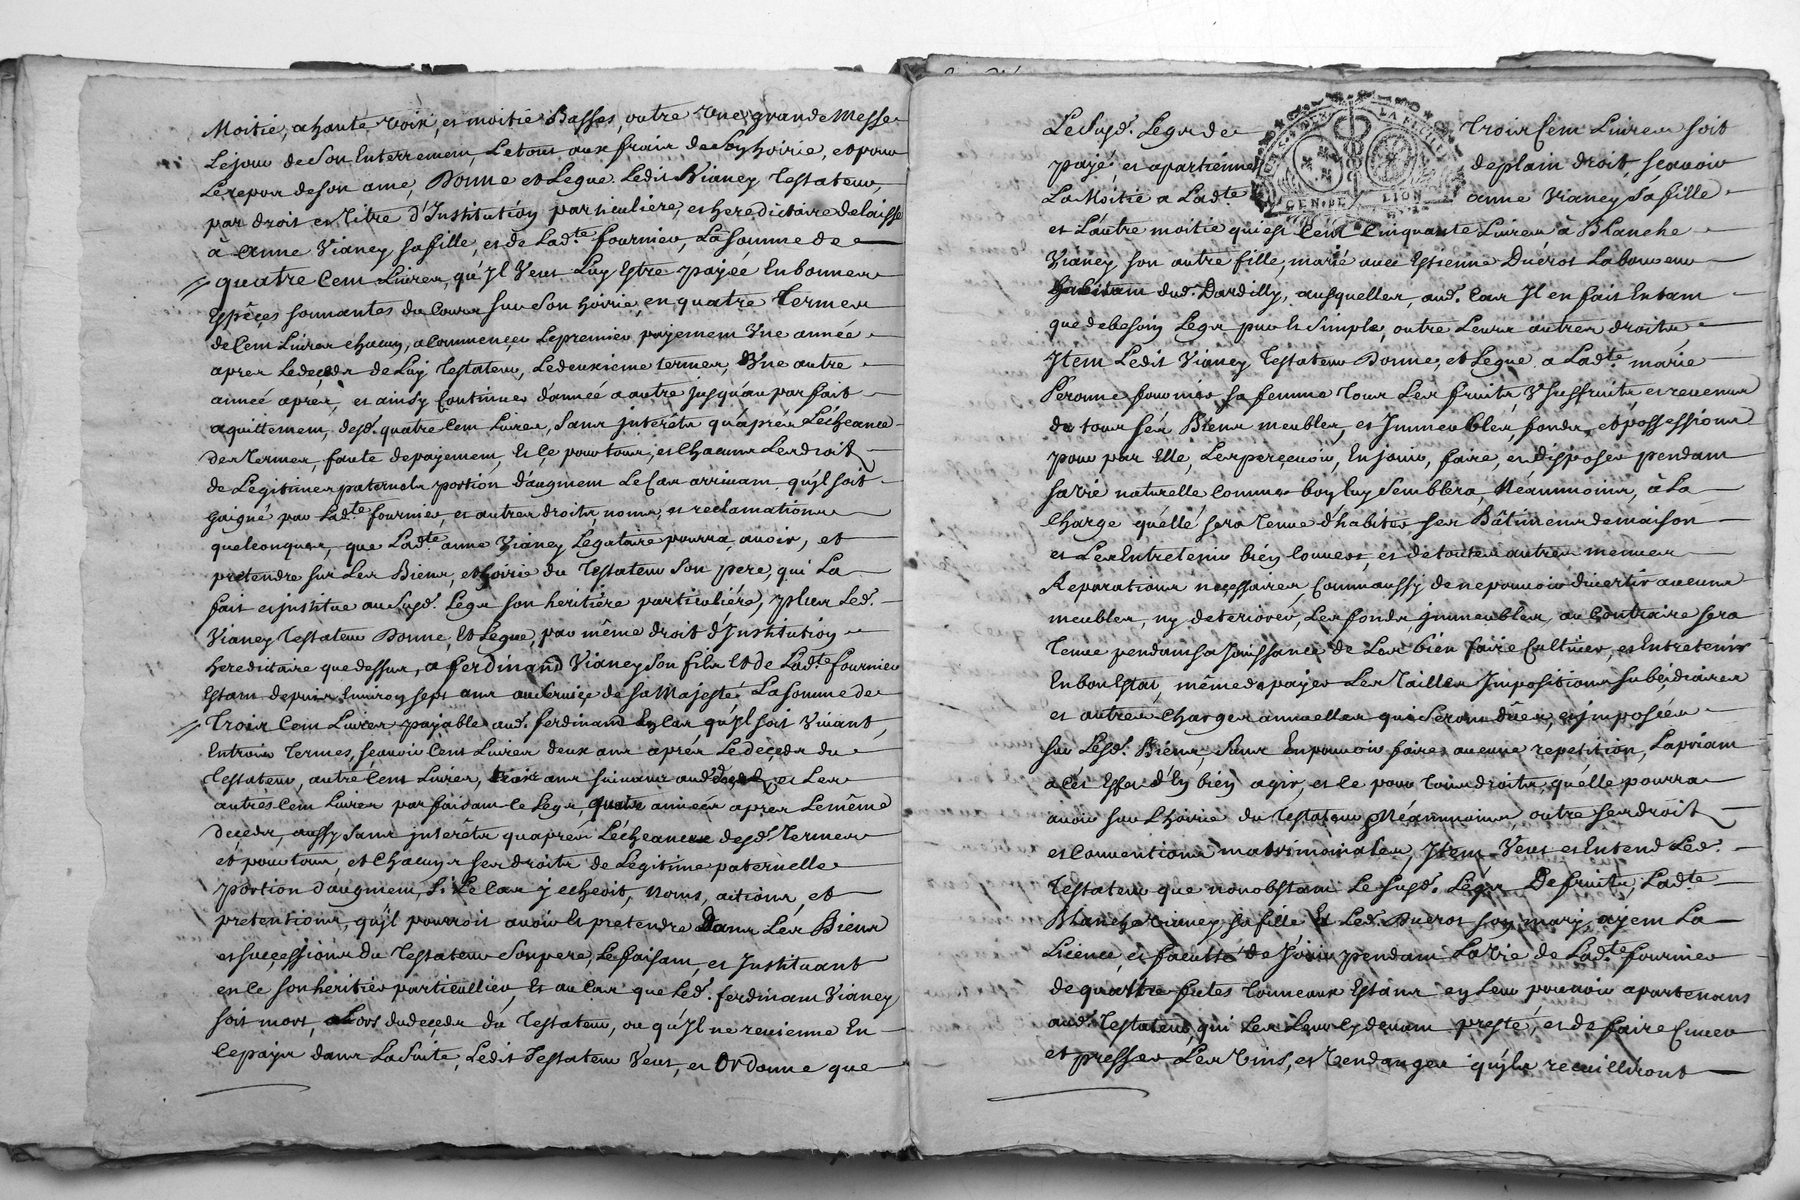 Moitié, ahaute voix, et moitié Basses, outre Une grande Messe
Lejour deSon Enterrement, Letout aux fraix deSonhoirie, et pour
Lerepos deson ame, Donne et Legue Ledit Vianey Testateur,
par droit et titre d'Institution particuliere, et hereditaire delaisse
à anne Vianey safille, et de Ladte fournier, LaSomme de
quatre Cent Livres, qu'Jl Veut Luy Estre payée En bonnes
Espèces sonnantes du Cours sur Son hoirie, en quatre Termes
deCent Livres chacun, aCommencer Lepremier payement Une année
apres Ledeçeds deLuy Testateur, Ledeuxieme termes, Une autre
année apres, et ainsy Continuer d'année a autre jusquàu parfait
aquittement, desd. quatre Cent Livres, Sans jnterêts quàprés L'écheance
des Termes, faute depayement, Et Çe pour tous, et Chacuns Lesdroits
de Legitimes paternels portion d'augment LeCas arrivant qu'jl soit
Gaigné par Ladte fournier, et autres droits, noms, et reclamations
quelconques, que Ladte anne Vianey Legataire pourra avoir, et
prétendre sur Les Biens, et hoirie du Testateur Son pere, qui La
fait et jnstitue au Susd. Legs son heritière particuliére, plus Led.
Vianey Testateur Donne, Et Legue, par même droit d'Jnstitution
hereditaire que dessus, a ferdinand Vianey Son fils Et de Ladte fournier
Estant depuis Environ sept ans auService de sa Majesté La Somme de
Trois Cent Livres payable aud. ferdinand En Cas qu'jl soit Vivant,
Entrois Termes, sçavoir Cent Livres deux ans aprés Ledeçeds du
Testateur, autre Cent Livres, trois ans suivants aud. deçeds, et Les
autres Cent Livres parfaisant Le Legs, quatre années apres Lemême
deçeds, aussy Sans jnterêts quapres L'écheance desd. Termes
et pour tous, et Chacuns ses droits de Legitime paternelle
portion d'augment, Si Le Cas y echeoit, noms, actions, et
pretentions, qu'jl pourroit avoir Et pretendre Dans Les Biens
et suççessions du Testateur Sonpere, Lefaisant, et Jnstituant
en Ce son heritier particullier, Et au Cas que Led. ferdinant Vianey
soit mort, aLors dudeçeds du Testateur, ou qu'jl ne revienne En
Cepays dans La Suite, Ledit Testateur Veut, et Ordonne que
Le Susd. Legs de Trois Cent Livres soit
payé, et apartienne deplain droit, sçavoir
La Moitié a Ladte anne Vianey Safille
et L'autre moitié qui est Cent Cinquante Livres à Blanche
Vianey son autre fille, marié avec Estienne Duérot Laboureur
habitant dud. Dardilly, ausquelles, aud. Cas Jl en fait Entant
que debesoin Legs pur Et Simple, outre Leurs autres droits
Jtem Ledit Vianey Testateur Donne, et Legue a Ladte marie
Peronne fournier sa femme Tous Les fruits Usuffruits et revenus
de tous sés Biens meubles, et Jmmeubles, fonds, et possessions
pour par Elle, Les perçevoir, En jouir, faire, et disposer pendant
sa vie naturelle Comme bon Luy Semblera, Néantmoins, à La
Charge quélle sera Tenue d'habiter Ses Bâtiments demaison
et Les Entretenir bien Couvert, et detoutes autres menues
Reparations necessaires, Comm aussy denepouvoir divertir aucuns
meubles, ny deteriorer, Les fonds, jmmeubles, au Contraire sera
Tenue pendant sa Jouissance de Les bien faire Cultiver, et Entretenir
En bon Estat, même de payer Les Tailles Impositions subçidiaires
et autres Charges annuelles qui Seront dûes, et jmposées
Sur Lesd. Biens, Sans En pouvoir faire aucune repetition, Lapriant
a Cet Effet d'En bien agir, et Ce pour Tous droits quélle pourra
avoir sur L'hoirie du Testateur Néantmoins outre Ses droits
et Conventions matrimoniales, Jtem Veut et Entend Led.
Testateur que nonobstant Le Susd. Legs De fruits, Ladte
Blanche Vianey sa fille Et Led. Duerot son mary, ayent La
Licence, et faculté de Joüir pendant La Vie de Ladte fournier
de quattre futes Tonneaux Estans en Leur pouvoir apartenans
aud. Testateur, qui Les Leur Cydevant presté, et de faire Cuver
et presser Les Vins, et Vendanges qujls recuilliront
GEN DE LION